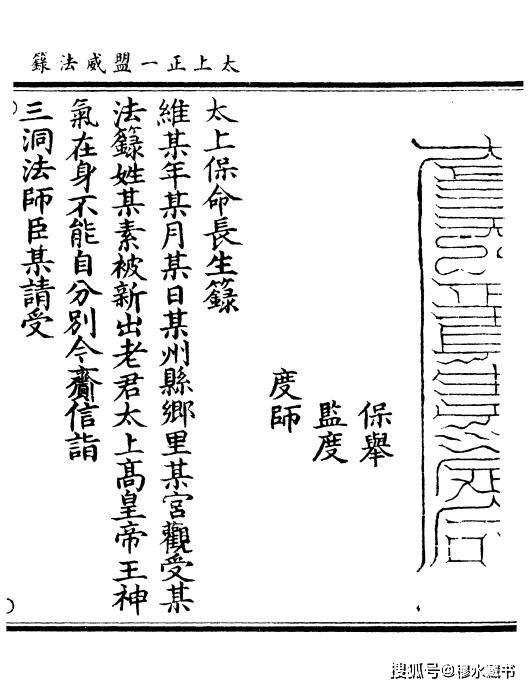 太上正一盟威法籙
保舉
監度
度師
太上保命長生籙
維某年某月某日某州縣鄉里某宮觀受某
法籙姓某素被新出老君太上高皇帝王神
氣在身不能自分別今齎信詣
三洞法師臣某請受
搜狐号@穆水藏书